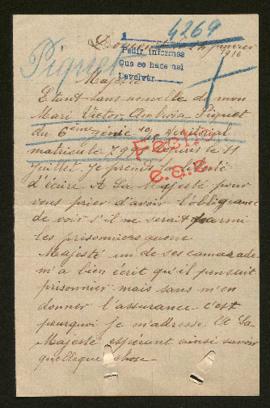 4269
Pedir informes
Que se hace así
Devolver
1916
Piquet
Majesté
Etant sans nouvelle de mon
Mari Victor Piquet
du 6eme génie territorial
matricule depuis le 11
Juillet. Je prends la liberté
d'écrire A Sa Majesté pour
vous prier d'avoir l'obligeance
de voir s'il ne serait parmi
les prisonniers
Majesté un de ses camarade
m'a bien écrit qu'il pensait
prisonnier mais sans m'en
donner l'assurance c'est
pourquoi je m'adresse A Sa
Majesté espérant ainsi savoir
quelque chose